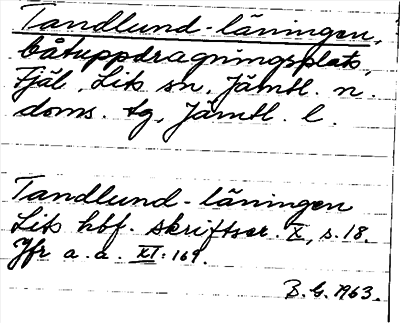 Tandlund-läningen,
båtuppdragningsplats,
Fjäl, Lits sn, Jämtl. n.
doms. tg, Jämtl. l.
Tandlund-läningen
Lits hbf. skriftser. X, s. 18.
Jfr a. a. XI: 169.
B. G. 1963.